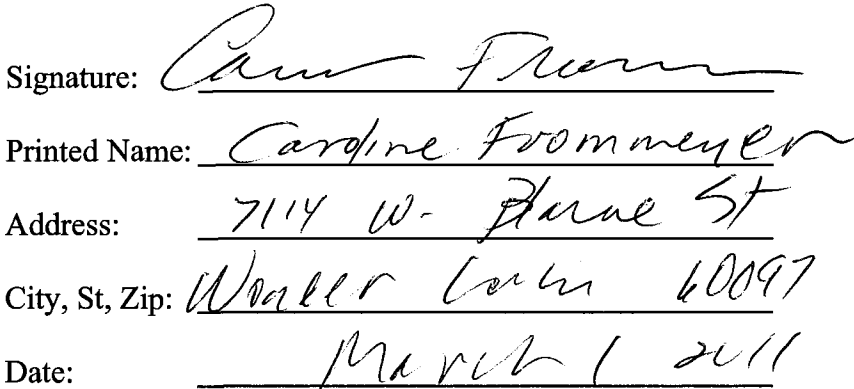 Signature:
Printed Name: Caroline Frommeyer
Address: 7114 W. St
City, St, Zip: Wonder Lake 60097
Date: March 1 2011